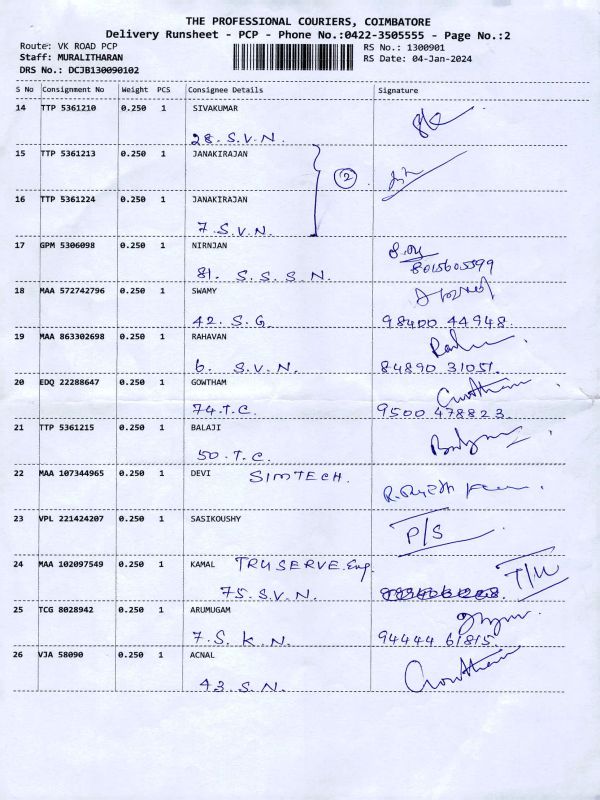 THE PROFESSIONAL COURIERS, COIMBATORE
Delivery Runsheet - PCP - Phone No.:0422-3505555 - Page No.:2
Route: VK ROAD PCP RS No.: 1300901
Staff: MURALITHARAN RS Date: 04-Jan-2024
DRS No.: DCJB130090102
S No Consignment No Weight PCS Consignee Details Signature
14 TTP 5361210 0.250 1 SIVAKUMAR
28. S.V.N.
15 TTP 5361213 0.250 1 JANAKIRAJAN
2
16 TTP 5361224 0.250 1 JANAKIRAJAN
7. S.V.N.
17 GPM 5306098 0.250 1 NIRNJAN
81. S.S.S.N. 8015605599
18 MAA 572742796 0.250 1 SWAMY
42. S.G. 98400 44948.
19 MAA 863302698 0.250 1 RAHAVAN
6. S.V.N. 84890 31051.
20 EDQ 22288647 0.250 1 GOWTHAM Gowtham
74.T.C. 9500 478823.
21 TTP 5361215 0.250 1 BALAJI
50.T.C.
22 MAA 107344965 0.250 1 DEVI SIMTECH.
23 VPL 221424207 0.250 1 SASIKOUSHY P/S
24 MAA 102097549 0.250 1 KAMAL TRUSERVE.Eng.
75.S.V.N.
25 TCG 8028942 0.250 1 ARUMUGAM
7.S.K.N. 94444 61815.
26 VJA 58090 0.250 1 ACNAL Gowtham
43.S.N.